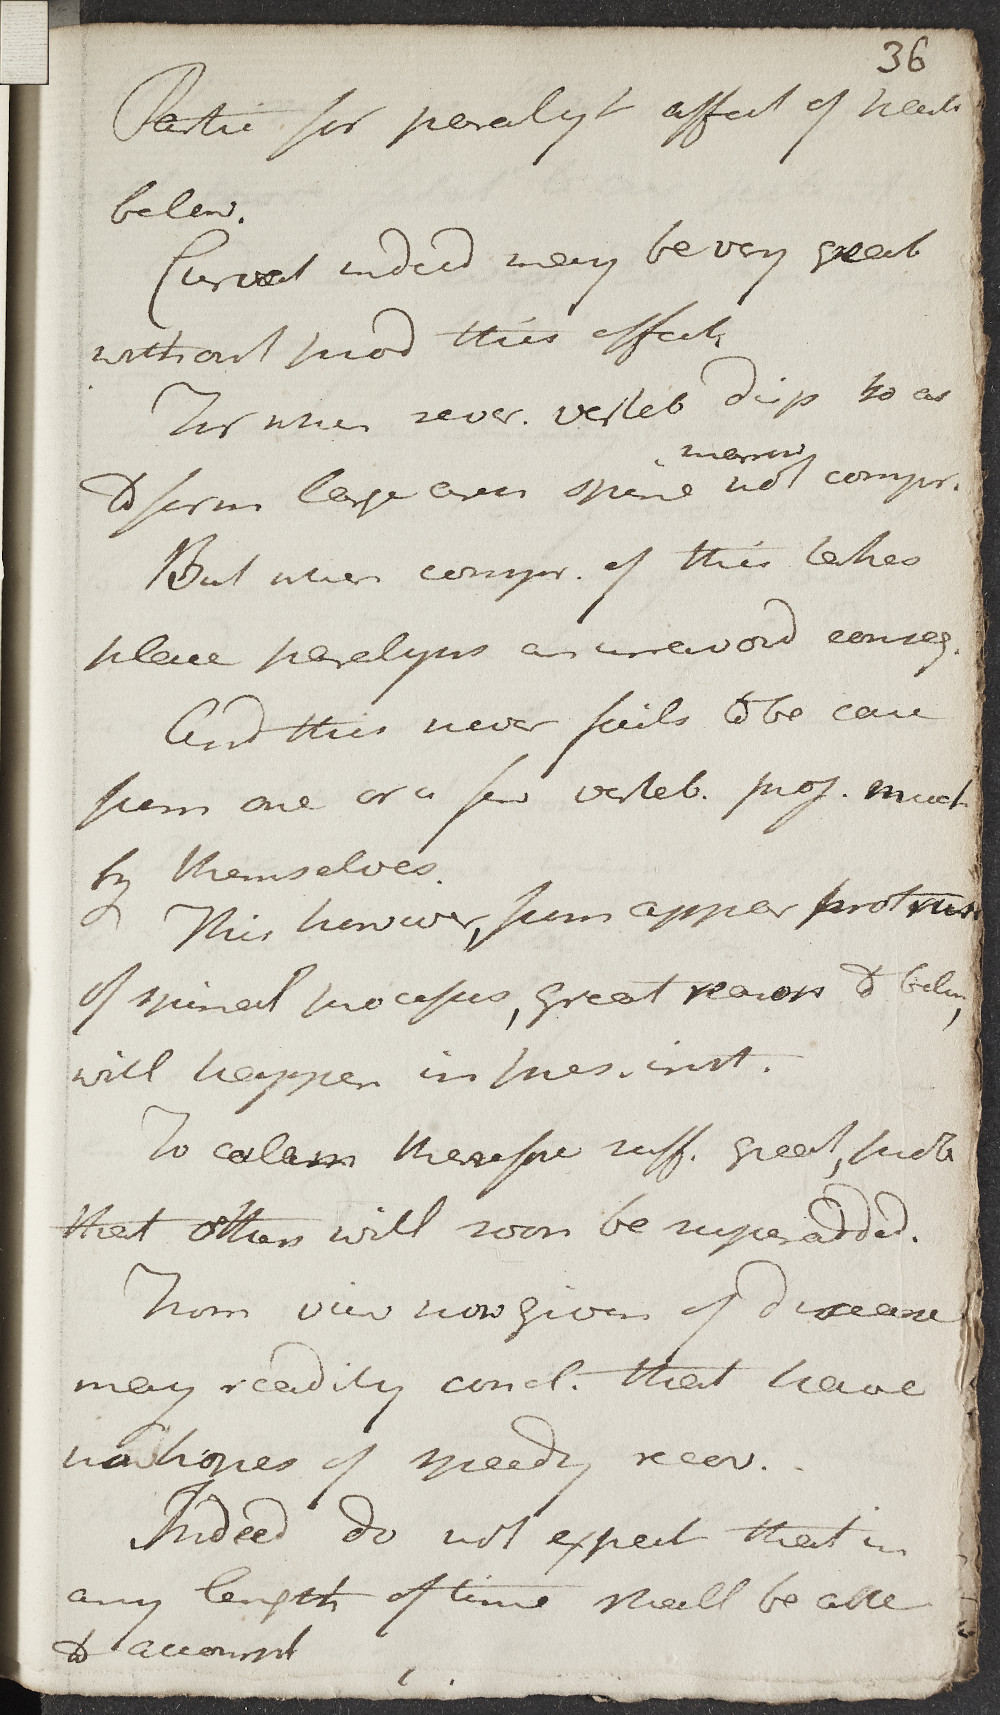 36
Partic for paralyt affect of
below.
Curvat indeed may be very great
without prod this effect,
For when sever. verteb disp so as
to form large area spine marrow not compr.
But when compr. of this takes
place paralysis an unavoid conseq.
And this never fails to be case
from one or a few verteb. proj. much
by themselves.
This however, from appear protrus
of spinal processes, great reason to believ,
will happen in pres. inst.
To calam therefore suff. great, prob
that others will soon be superadded.
From view now given of disease
may readily concl. that have
no hopes of speedy recov.
Indeed do not expect that in
any length of time shall be able
to account